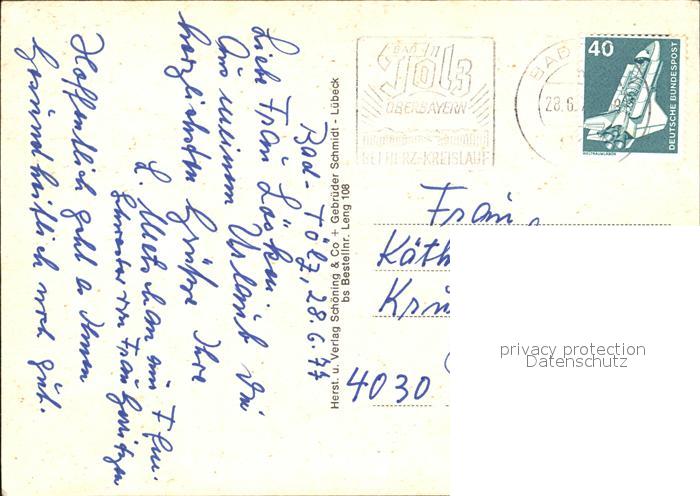 Bad-Tölz, 28.6.77
Liebe Frau Lösken!
Aus meinem Urlaub die
herzlichsten Grüße Ihre
L. und Fam.
Schwester von Frau
Hoffentlich geht es Ihnen
gesundheitlich noch gut.
Herst. u. Verlag Schöning & Co + Gebrüder Schmidt - Lübeck
bs Bestellnr. Leng 108
BAD
TÖLZ
OBERBAYERN
BEI HERZ-KREISLAUF
BAD
28.6.
40
DEUTSCHE BUNDESPOST
WELTRAUMLABOR
Frau
Käth
Krü
4030
privacy protection
Datenschutz